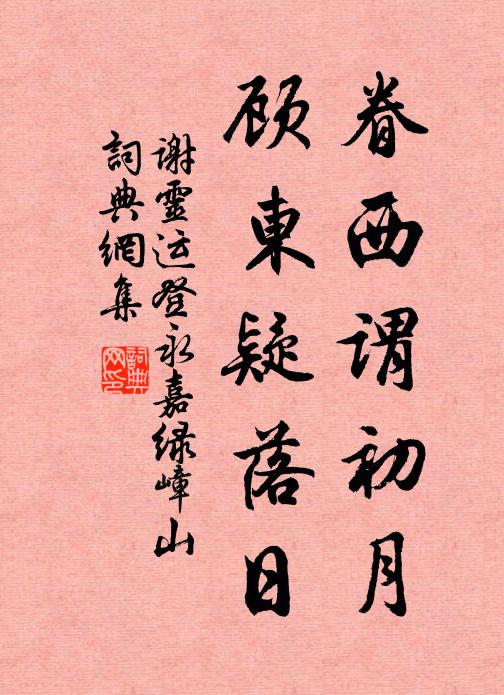 眷西謂初月
顧東疑落日
谢靈运登永嘉绿嶂山
詞典網集
詞典
网印